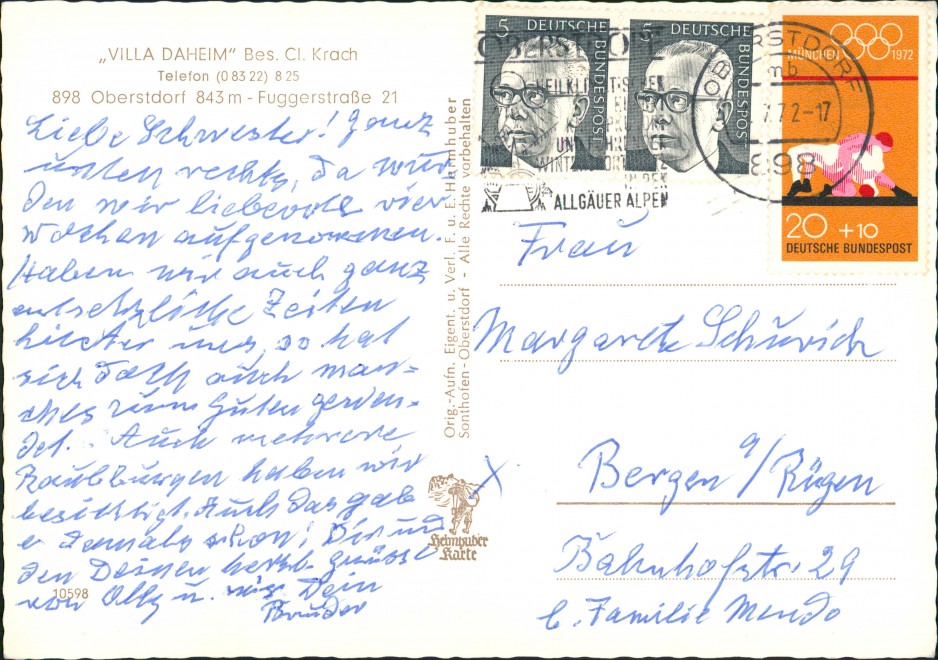 „VILLA DAHEIM" Bes. Cl. Krach
Telefon (0 83 22) 8 25
898 Oberstdorf 843 m - Fuggerstraße 21
Liebe Schwester! Ganz
unten rechts, da wur
den wir liebevoll vier
Wochen aufgenommen.
Haben wir auch ganz
entsetzliche Zeiten
hinter uns, so hat
sich doch auch man-
ches zum Guten gewen-
det. Auch mehrere
Raubburgen haben wir
besichtigt. Auch das gab
es damals schon! Dir und
den Deinen herzl. Grüsse
von Olly u. Dein
Bruder
10598
Orig.-Aufn. Eigent. u. Verl. F. u. E. Heimhuber
Sonthofen-Oberstdorf - Alle Rechte vorbehalten
Heimhuber
Karte
5 DEUTSCHE BUNDESPOST
5 DEUTSCHE BUNDESPOST
OBERSTDORF
HEILKLIMATISCHER
UND
WINTERSPORT
ALLGÄUER ALPEN
OBERSTDORF
mb
7.72-17
898
MÜNCHEN 1972
20 +10
DEUTSCHE BUNDESPOST
Frau
Margarete Schurich
Bergen a/Rügen
Bahnhofstr. 29
b. Familie Mendo